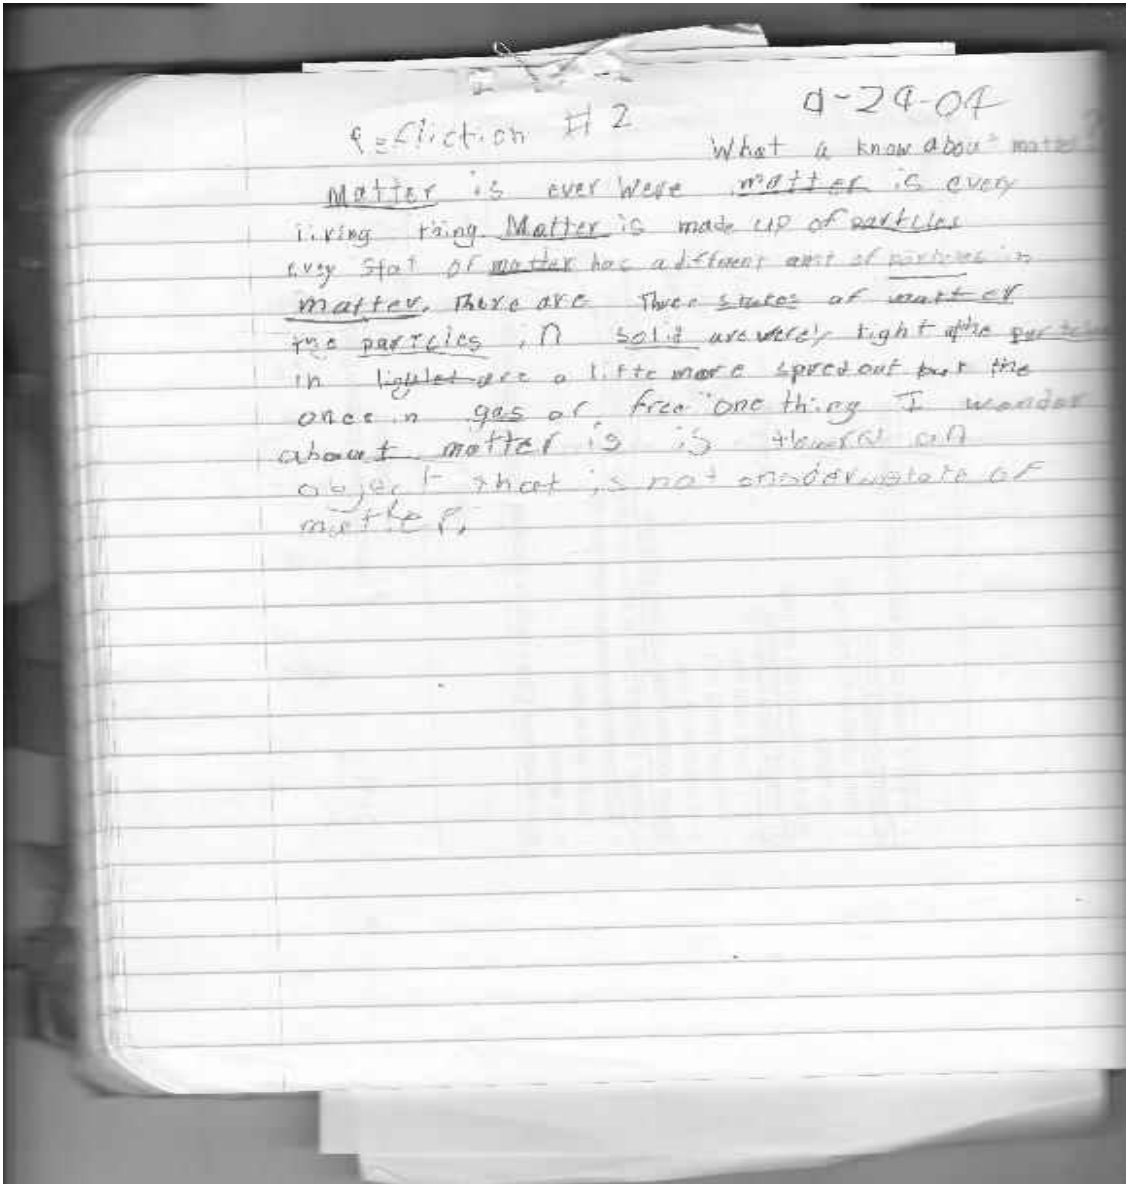 Refliction #2 9-29-04
What a know about matter?
Matter is ever were matter is every
living thing Matter is made up of particles
evey stat of matter has a different amt of particles in
matter. There are Three states of matter
the particles in solid are verey tight the particles
in are a litte more spred out but the
once in gas ar free one thing I wonder
about matter is is
object that is not state of
matter.